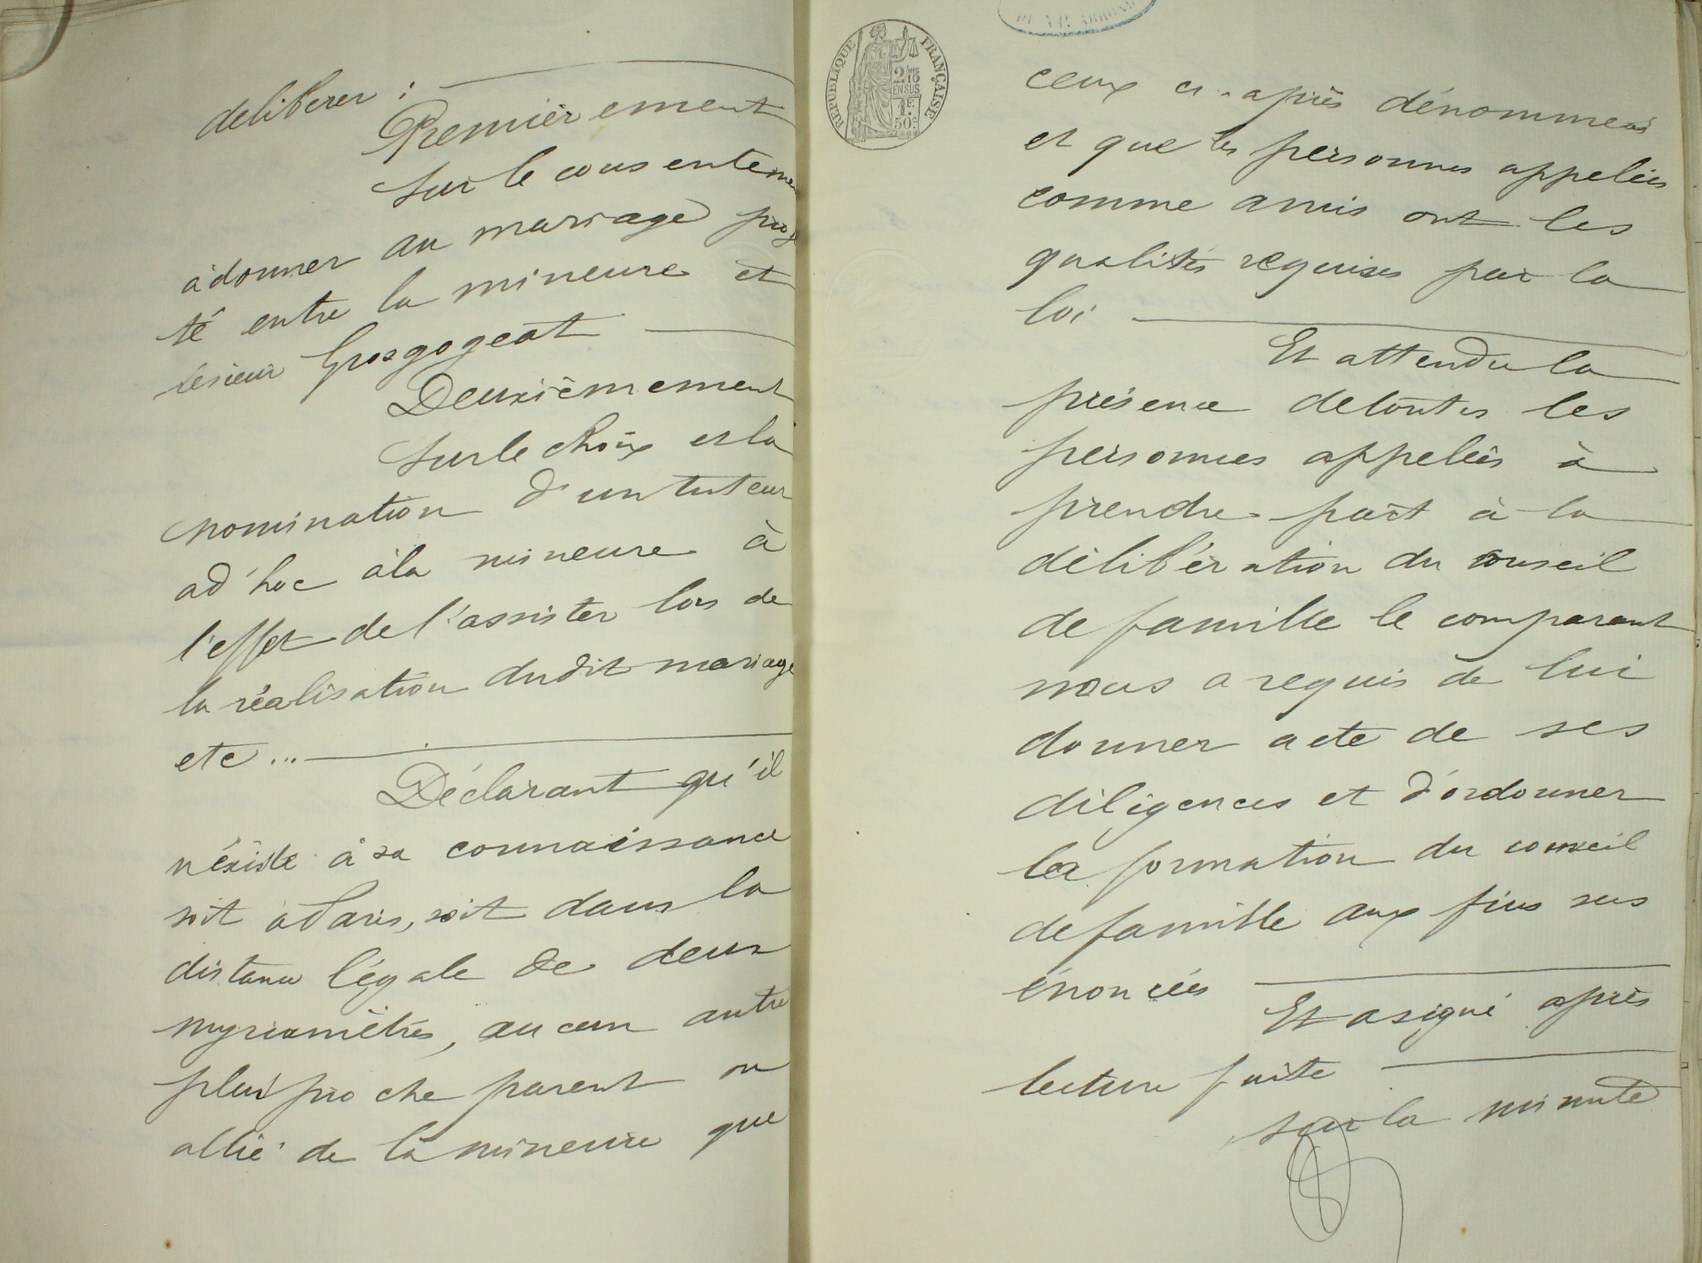 deliberer :
Premièrement
sur le consenteme
à donner au mariage proj
té entre la mineure et
le sieur Grosgogeat
Deuxièmement
sur le choix et la
nomination d'un tuteur
ad'hoc à la mineure à
l'effet de l'assister lors de
la réalisation dudit mariage
etc ...
Déclarant qu'il
n'éxiste à sa connaissance
soit à Paris, soit dans la
distance légale de deux
myriamètres, aucun autre
plus proche parent ou
allié de la mineure que
RÉPUBLIQUE FRANÇAISE
2/10 EN SUS
1F.
50c
ceux ci-après dénommés
et que les personnes appelées
comme amis ont les
qualités requises par la
loi
Et attendu la
présence de toutes les
personnes appelées à
prendre part à la
délibération du conseil
de famille le comparant
nous a requis de lui
donner acte de ses
diligences et d'ordonner
la formation du conseil
de famille aux fins sus
énoncées
Et a signé après
lecture faite
sur la minute